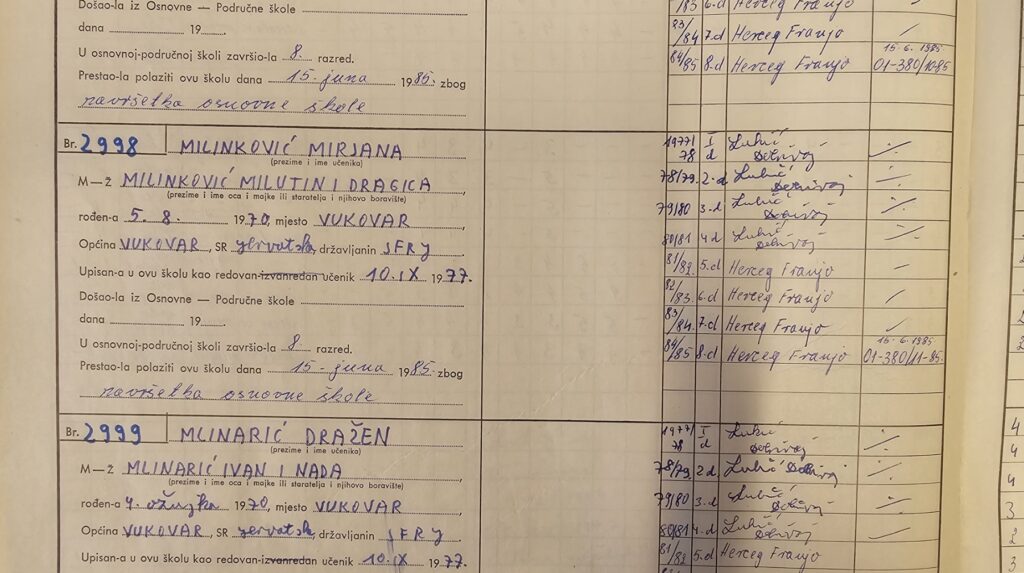 Došao-la iz Osnovne — Područne škole
dana 19
U osnovnoj-područnoj školi završio-la 8. razred.
Prestao-la polaziti ovu školu dana 15. juna 1985. zbog
navršetka osnovne škole
/83 6-d Herceg Franjo
83/84 7-d Herceg Franjo /
84/85 8-d Herceg Franjo 15. 6. 1985. 01-380/10-85
Br. 2998 MILINKOVIĆ MIRJANA
(prezime i ime učenika)
M—ž MILINKOVIĆ MILUTIN I DRAGICA
(prezime i ime oca i majke ili staratelja i njihovo boravište)
rođen-a 5. 8. 1970, mjesto VUKOVAR
Općina VUKOVAR, SR Hrvatska, državljanin SFRJ
Upisan-a u ovu školu kao redovan-izvanredan učenik 10. IX 1977.
Došao-la iz Osnovne — Područne škole
dana 19
U osnovnoj-područnoj školi završio-la 8. razred.
Prestao-la polaziti ovu školu dana 15. juna 1985. zbog
navršetka osnovne škole
1977/78 I d
78/79. 2-d
79/80 3-d
80/81 4d
81/82. 5.d Herceg Franjo /
82/83. 6-d Herceg Franjo /
83/84. 7-d Herceg Franjo /
84/85 8-d Herceg Franjo 15. 6. 1985 01-380/11-85.
Br. 2999 MLINARIĆ DRAŽEN
(prezime i ime učenika)
M—ž MLINARIĆ IVAN I NADA
(prezime i ime oca i majke ili staratelja i njihovo boravište)
rođen-a 4. ožujka 1970, mjesto VUKOVAR
Općina VUKOVAR, SR Hrvatska, državljanin SFRJ
Upisan-a u ovu školu kao redovan-izvanredan učenik 10. IX 1977.
1977/78 I d
78/79. 2d
79/80 3-d
80/81 4-d
81/82 5-d Herceg Franjo